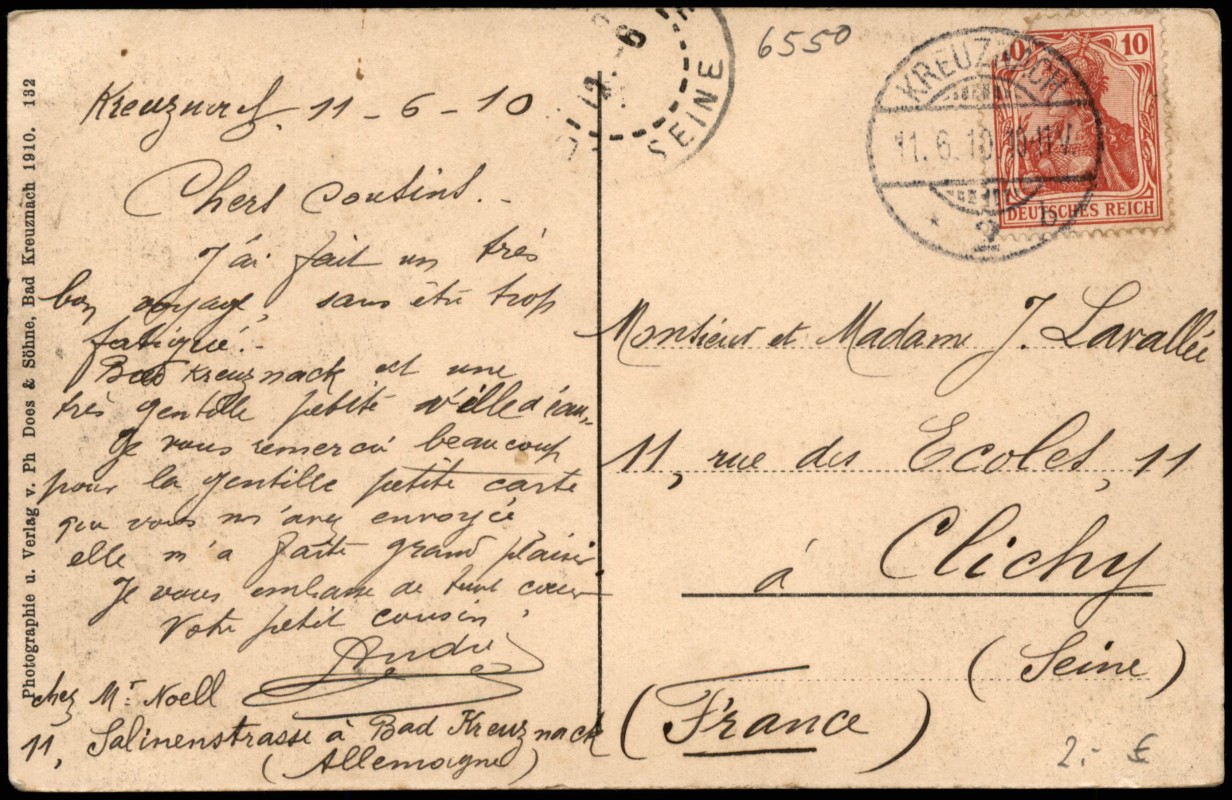 6550
SEINE
KREUZNACH
11.6.10.10-11V.
* 2 b
10 10
DEUTSCHES REICH
Photographie u. Verlag v. Ph Does & Söhne, Bad Kreuznach 1910. 132
Kreuznach. 11 - 6 - 10
Chers Cousins.-
J'ai fait un très
bon voyage, sans être trop
fatigué.-
Bad Kreuznack est une
très gentille petite ville d'eau,,
Je vous remercie beaucoup
pour la gentille petite carte
que vous m'avez envoyée
elle m'a faite grand plaisir
Je vous embrasse de tout cœur
Votre petit cousin
André
chez Mr Noell
11, Salinenstrasse à Bad Kreuznack
(Allemagne)
Monsieur et Madame J. Lavallée
11, rue des Ecoles, 11
à Clichy
(Seine)
(France)
2.- €